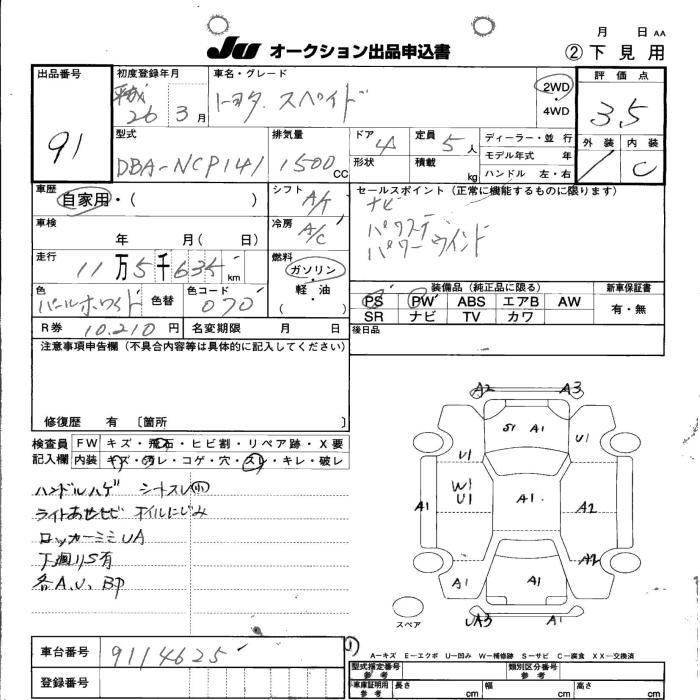 月 日 AA
JU オークション出品申込書
② 下見用
出品番号 初度登録年月 車名・グレード 評価点
91 平成 26 3 月 トヨタ スペイド 2WD 4WD 3.5
型式 排気量 ドア 4 定員 5 人 ディーラー・並 行 外装 内装
DBA-NCP141 1500 CC 形状 積載 kg モデル年式 年 C
ハンドル 左・右
車歴 シフト A/T セールスポイント(正常に機能するものに限ります)
自家用・( )
ナビ
車検 冷房 A/C パワステ
年 月( 日) パワーウインド
走行 燃料
11万5千635 km ガソリン・
色 色替 色コード 軽油 装備品(純正品に限る) 新車保証書
パールホワイト 070 ( ) PS PW ABS エアB AW 有・無
SR ナビ TV カワ
R券 10.210 円 名変期限 月 日 後日品
注意事項申告欄(不具合内容等は具体的に記入してください)
修復歴 有 〔箇所 〕
検査員 FW キズ・飛石・ヒビ割・リペア跡・X要
記入欄 内装 キズ・汚レ・コゲ・穴・スレ・キレ・破レ
ハンドルハゲ シートスレ小
ライトあせヒビ オイルにじみ
ロッカーミミUA
下廻りS有
各A、U、BP
A2 A3
S1 A1 U1
U1
W1
U1
A1 A1 A2
A2
A1 A1
UA3 A1
スペア
車台番号 9114625
登録番号
A−キズ E−エクボ U−凹み W−補修跡 S−サビ C−腐食 XX−交換済
型式指定番号 参考 類別区分番号 参考
車庫証明用 参考 長さ cm 幅 cm 高さ cm